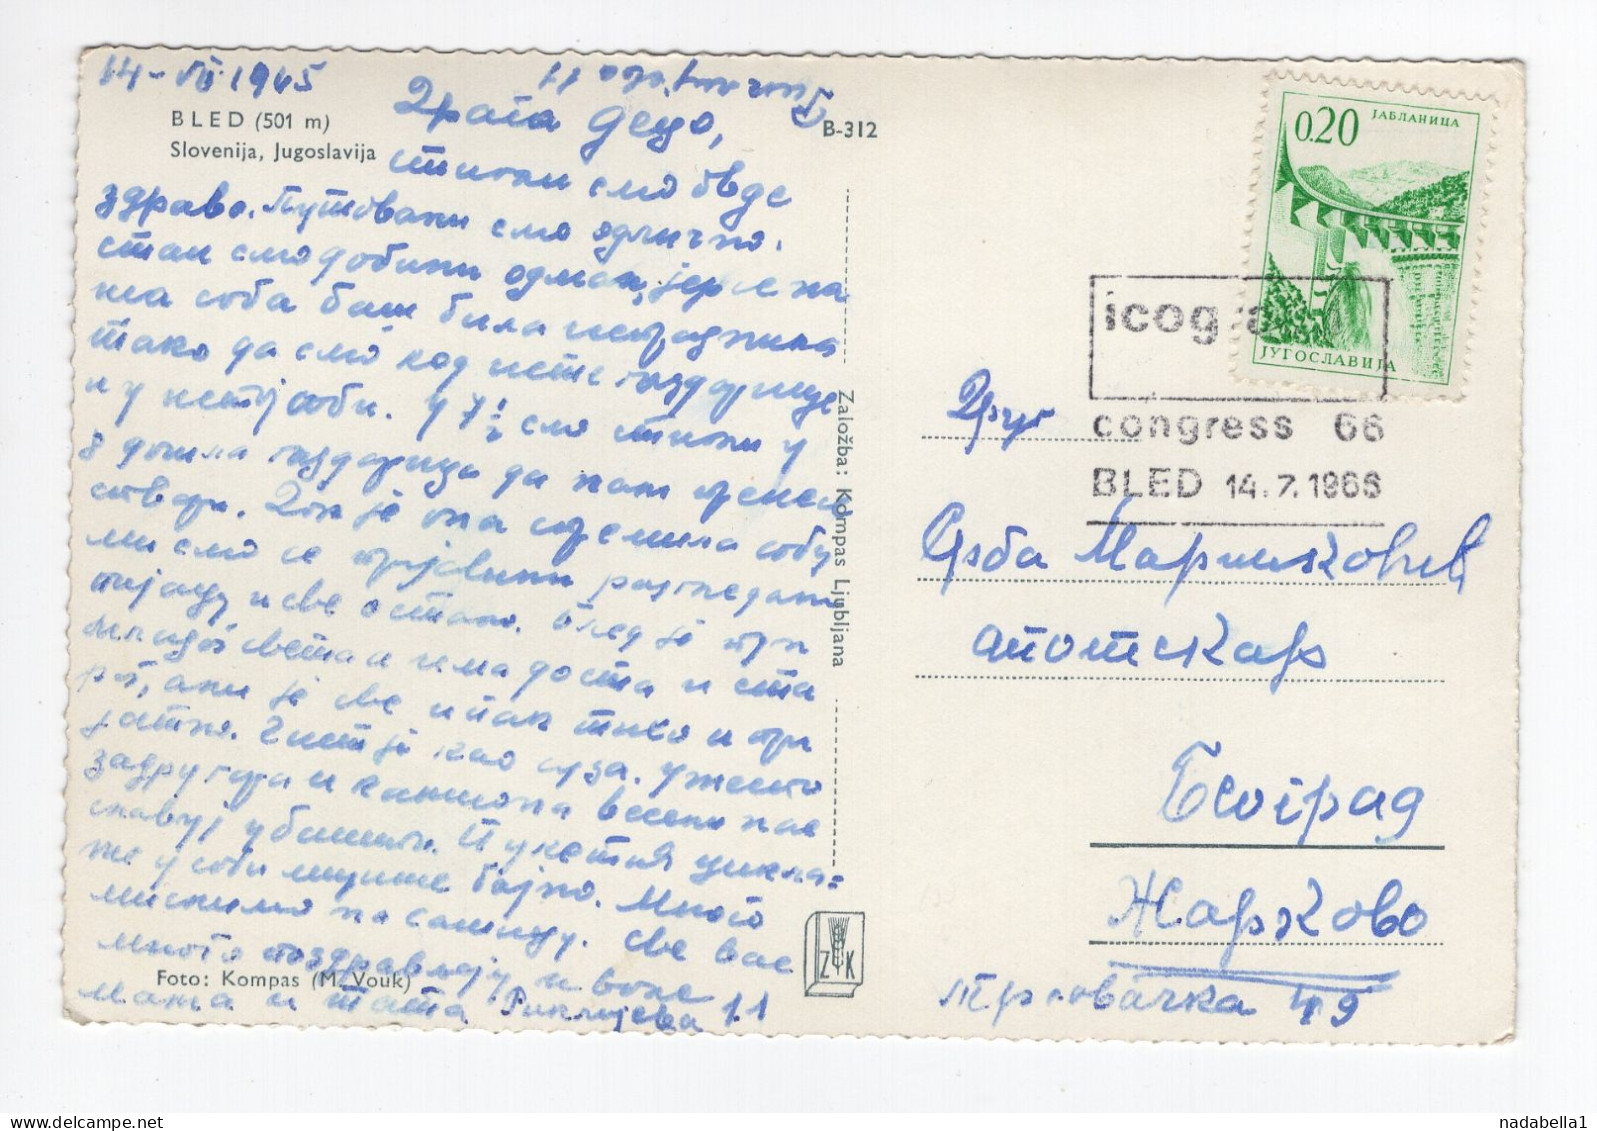 14-VII 1965
BLED (501 m)
Slovenija, Jugoslavija
B-312
Драга децо,
стигли смо овде
здраво. Путовали смо одлично.
стан смо добили одмах, јер је на
ша соба баш била испражњена
тако да смо код исте газдарице
и у истој соби. У 7 1/2 смо стигли у
8 дошла газдарица да нам пренесе
ствари. Док је она спремила собу
ми смо се пријавили разгледали
пијацу и све остало. Блед је при
многог света и има доста и ста
рог, али је све ипак тихо и при
јатно. Чист је као суза. Уместо
задругара и камиона весели нас
славуј у башти. И укетић цикла=
ме у соби мирише бајно. Много
мислимо на Сањицу. Све вас
много поздрављају и воле
мама и тата Риклијева 11
Založba: Kompas Ljubljana
Foto: Kompas (M. Vouk)
ZK
0.20
ЈАБЛАНИЦА
ЈУГОСЛАВИЈА
icog a
congress 66
BLED 14.7.1966
Друг
Срба Маринковић
апотекар
Београд
Жарково
Трговачка 49
nadabella1